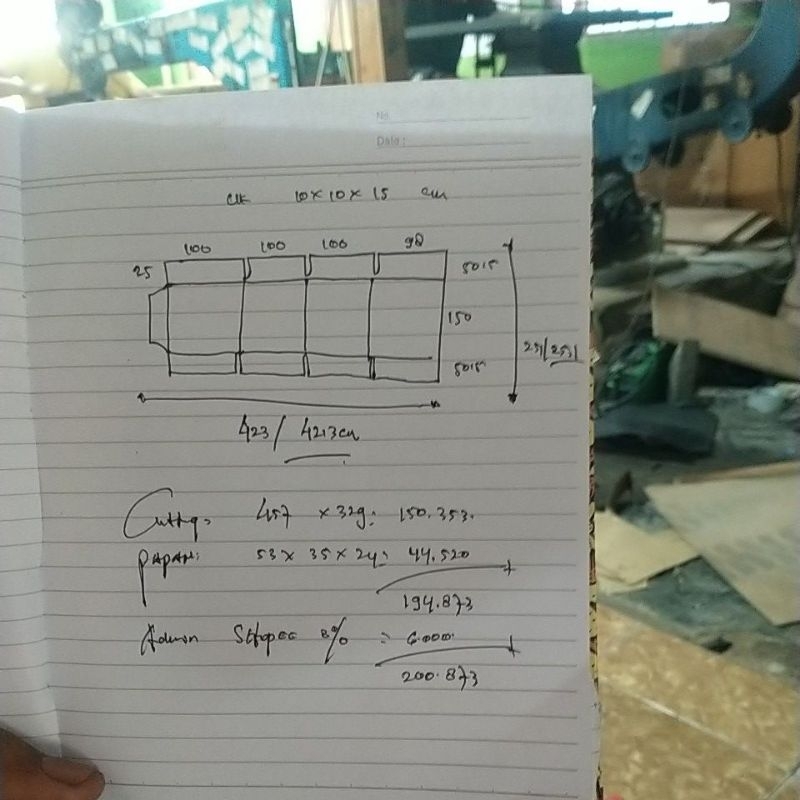 No
Date :
Uk 10 x 10 x 15 cm
100 100 100 98
25 50.5
150
251/25.1
50.5
423/ 42.3 cm
Cutting = 457 x 329 = 150.353
PAPAN: 53 x 35 x 24 = 44.520
194.873
Admin Shopee 8% = 6000
200.873